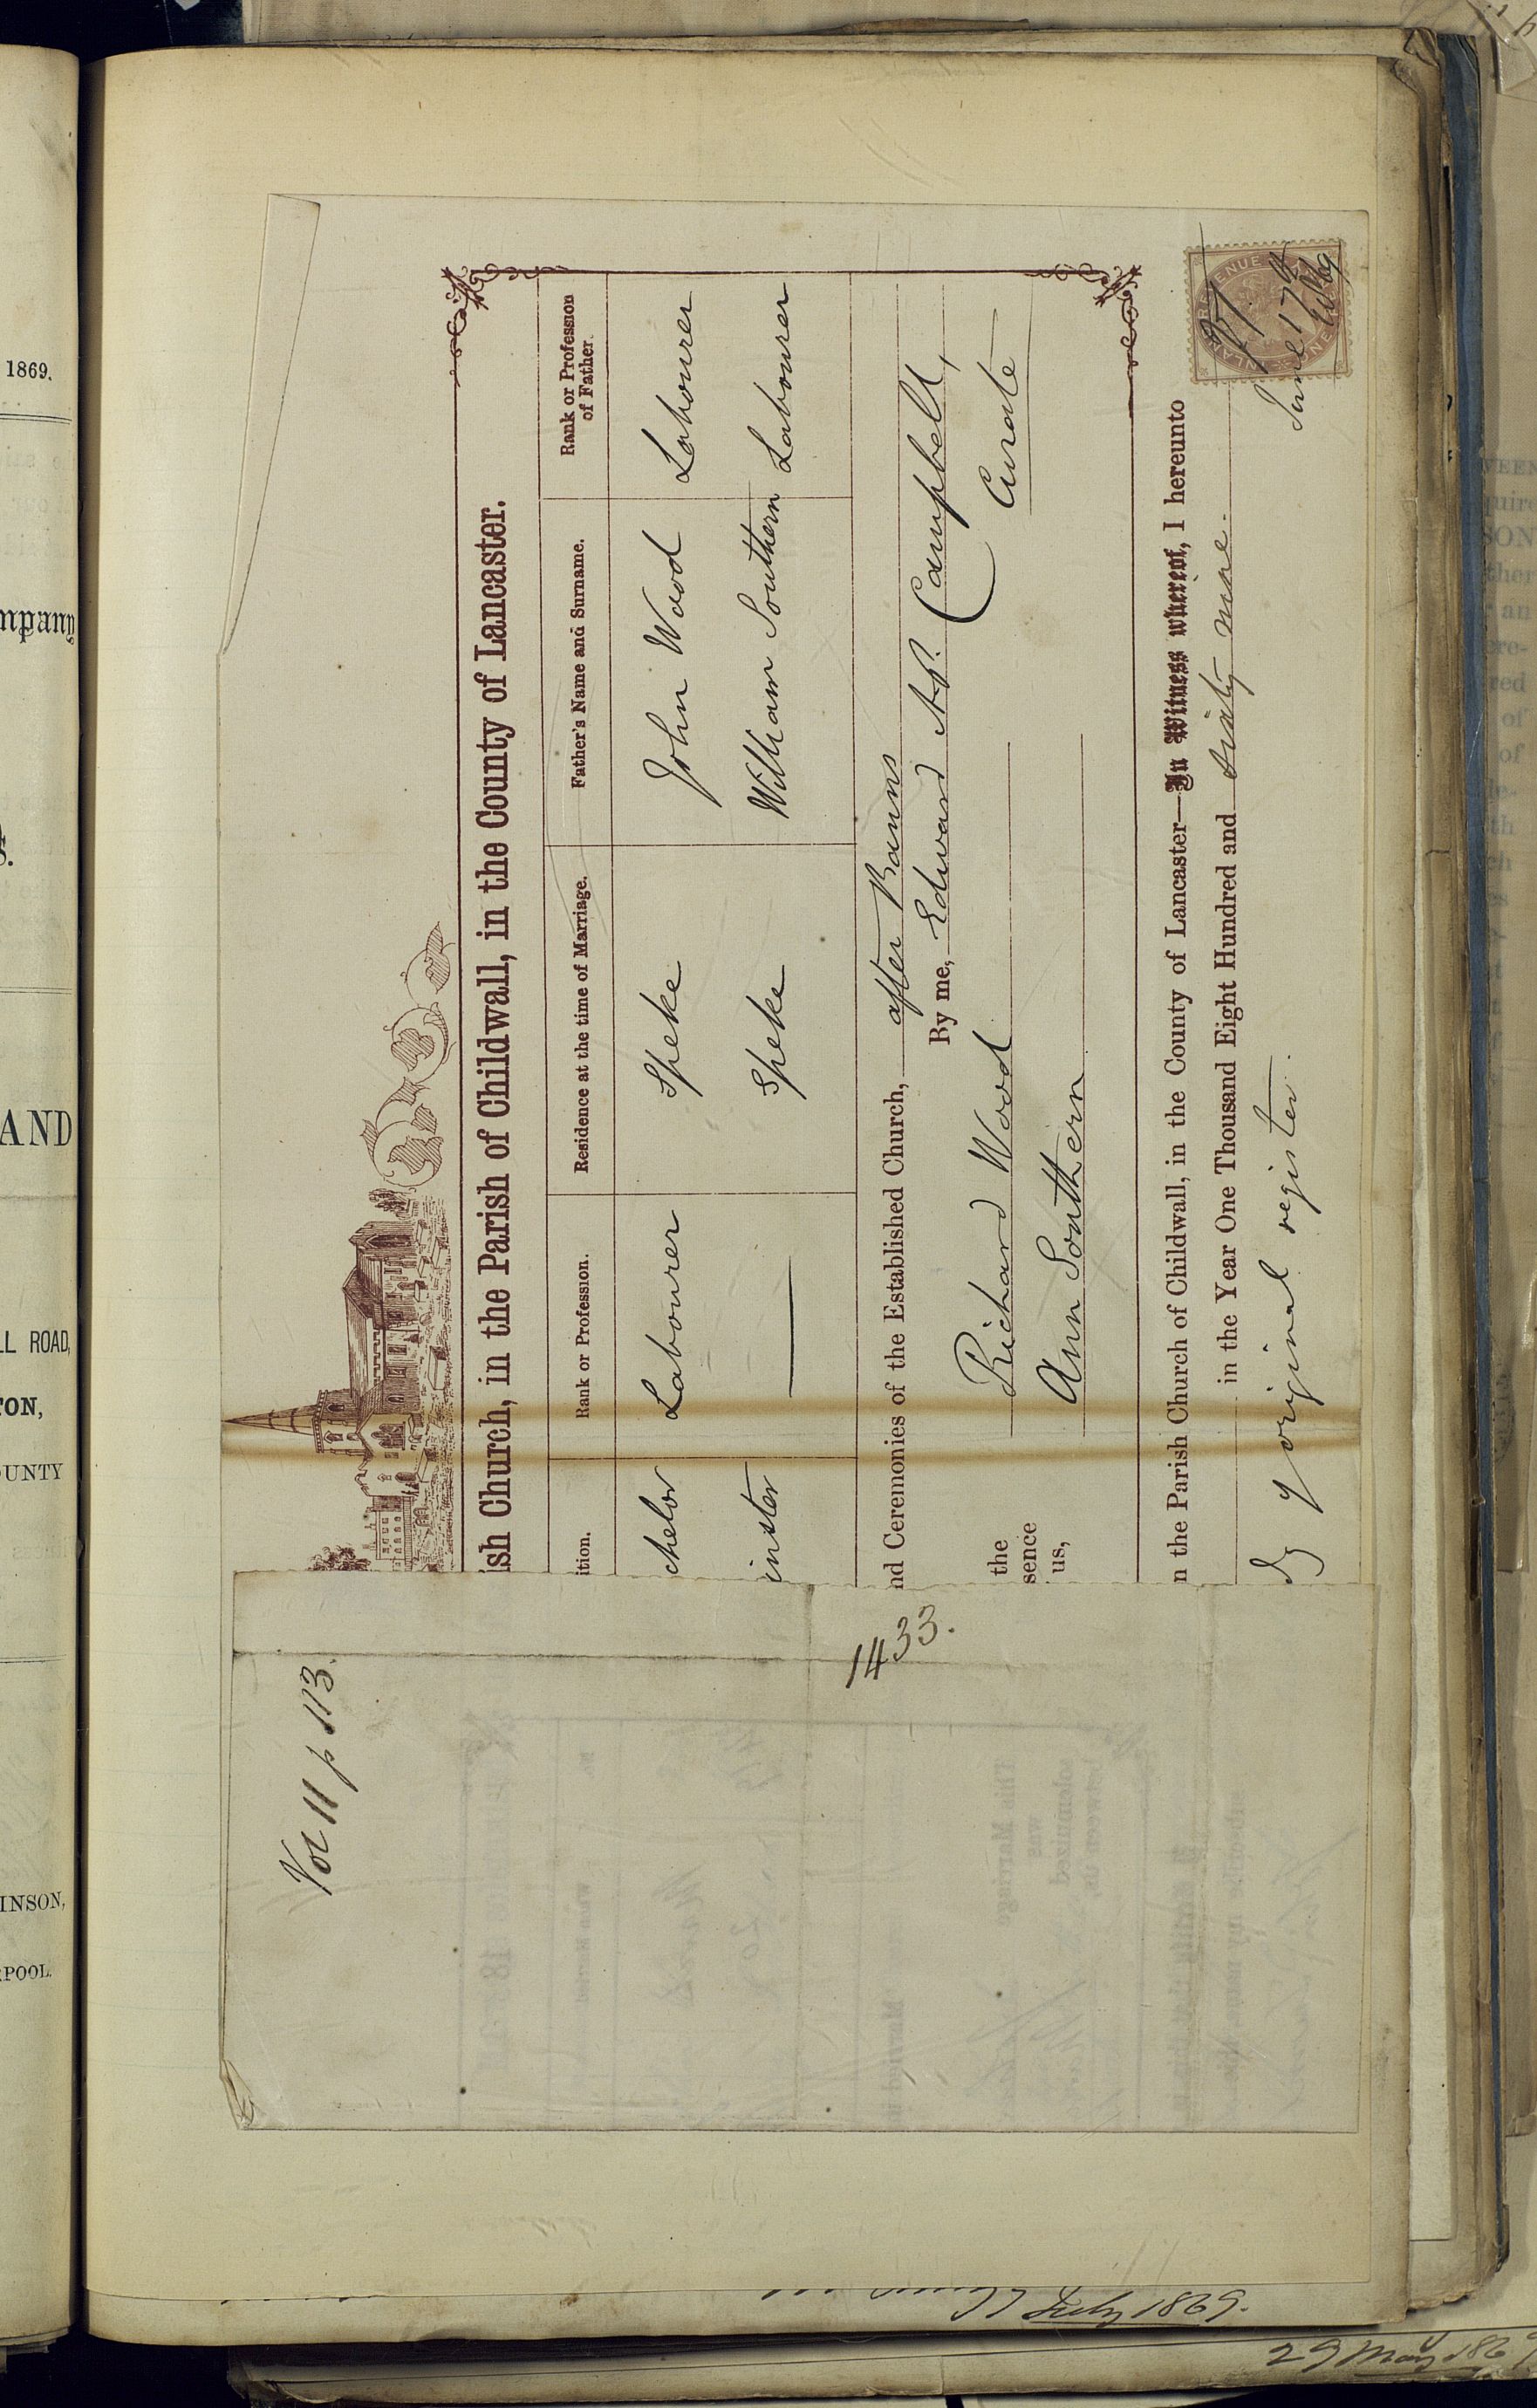 Vol 11 p 113.
1433.
ish Church, in the Parish of Childwall, in the County of Lancaster.
ition. Rank or Profession. Residence at the time of Marriage. Father's Name and Surname. Rank or Profession of Father.
chelor Labourer Speke John Wood Labourer
inster Speke William Southern Labourer
nd Ceremonies of the Established Church, after Banns
By me, Edward A.P. Campbell,
Curate
the
sence
us,
Richard Wood
Ann Southern
n the Parish Church of Childwall, in the County of Lancaster—In Witness whereof, I hereunto
in the Year One Thousand Eight Hundred and sixty nine.
original register.
June 17th
1869
1869.
mpany
AND
LL ROAD,
TON,
OUNTY
INSON,
RPOOL.
July 1869.
29 May 1869